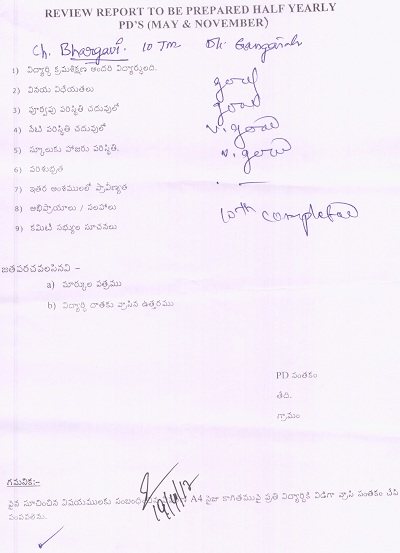 REVIEW REPORT TO BE PREPARED HALF YEARLY
PD'S (MAY & NOVEMBER)
Ch. Bhargavi. 10 Tm
1) విద్యార్థి క్రమశిక్షణ ఇందరి విద్యార్థులది.
2) వినయ విధేయతలు good
3) పూర్వపు పరిస్థితి చదువులో good
4) నేటి పరిస్థితి చదువులో v. good
5) స్కూలుకు హాజరు పరిస్థితి. v. good
6) పరిశుభ్రత
7) ఇతర అంశములలో ప్రావీణ్యత
8) అభిప్రాయాలు / సలహాలు 10th completed
9) కమిటీ సభ్యుల సూచనలు
జతపరచవలసినవి -
a) మార్కుల పత్రము
b) విద్యార్థి దాతకు వ్రాసిన ఉత్తరము
PD సంతకం
తేది.
గ్రామం
గమనిక:-
పైన సూచించిన విషయములకు A4 సైజు కాగితముపై ప్రతి విద్యార్థికి విడిగా వ్రాసి సంతకం చేసి
పంపవలెను.